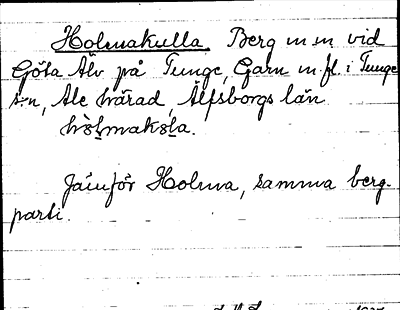 Holmakulla. Berg m m vid
Göta Älv på Tunge, Garn m. fl. i Tunge
s:n, Ale härad, Älfsborgs län
hòlmakùla.
Jämför Holma, samma berg-
parti.